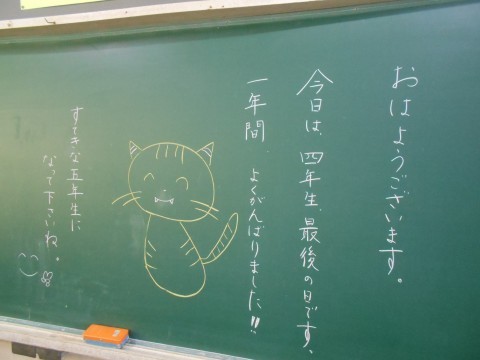 おはようございます。
今日は、四年生、最後の日です。
一年間、よくがんばりました!!
すてきな五年生に
なって下さいね。